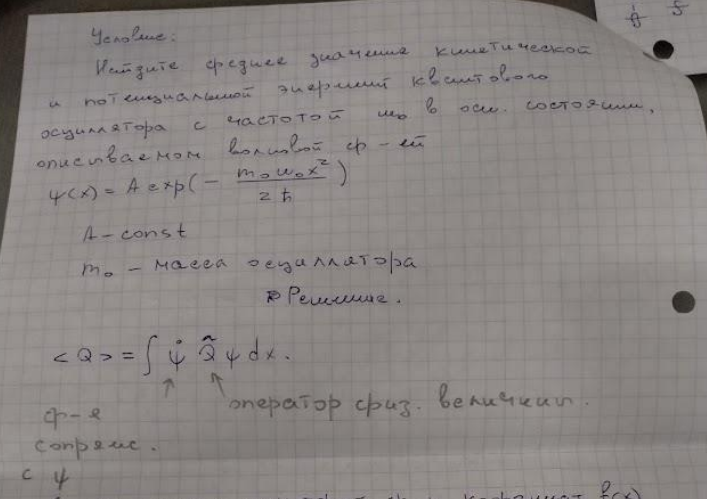 Условие:
Найдите среднее значение кинетической
и потенциальной энергий квантового
осциллятора с частотой ω₀ в осн. состоянии,
описываемом волновой ф-ей
ψ(x) = A exp(- m₀ω₀x² / 2ħ)
A - const
m₀ - масса осциллятора
Решение.
<Q> = ∫ ψ* Q̂ ψ dx.
ф-я
оператор физ. величины.
сопряж.
с ψ
f(x)